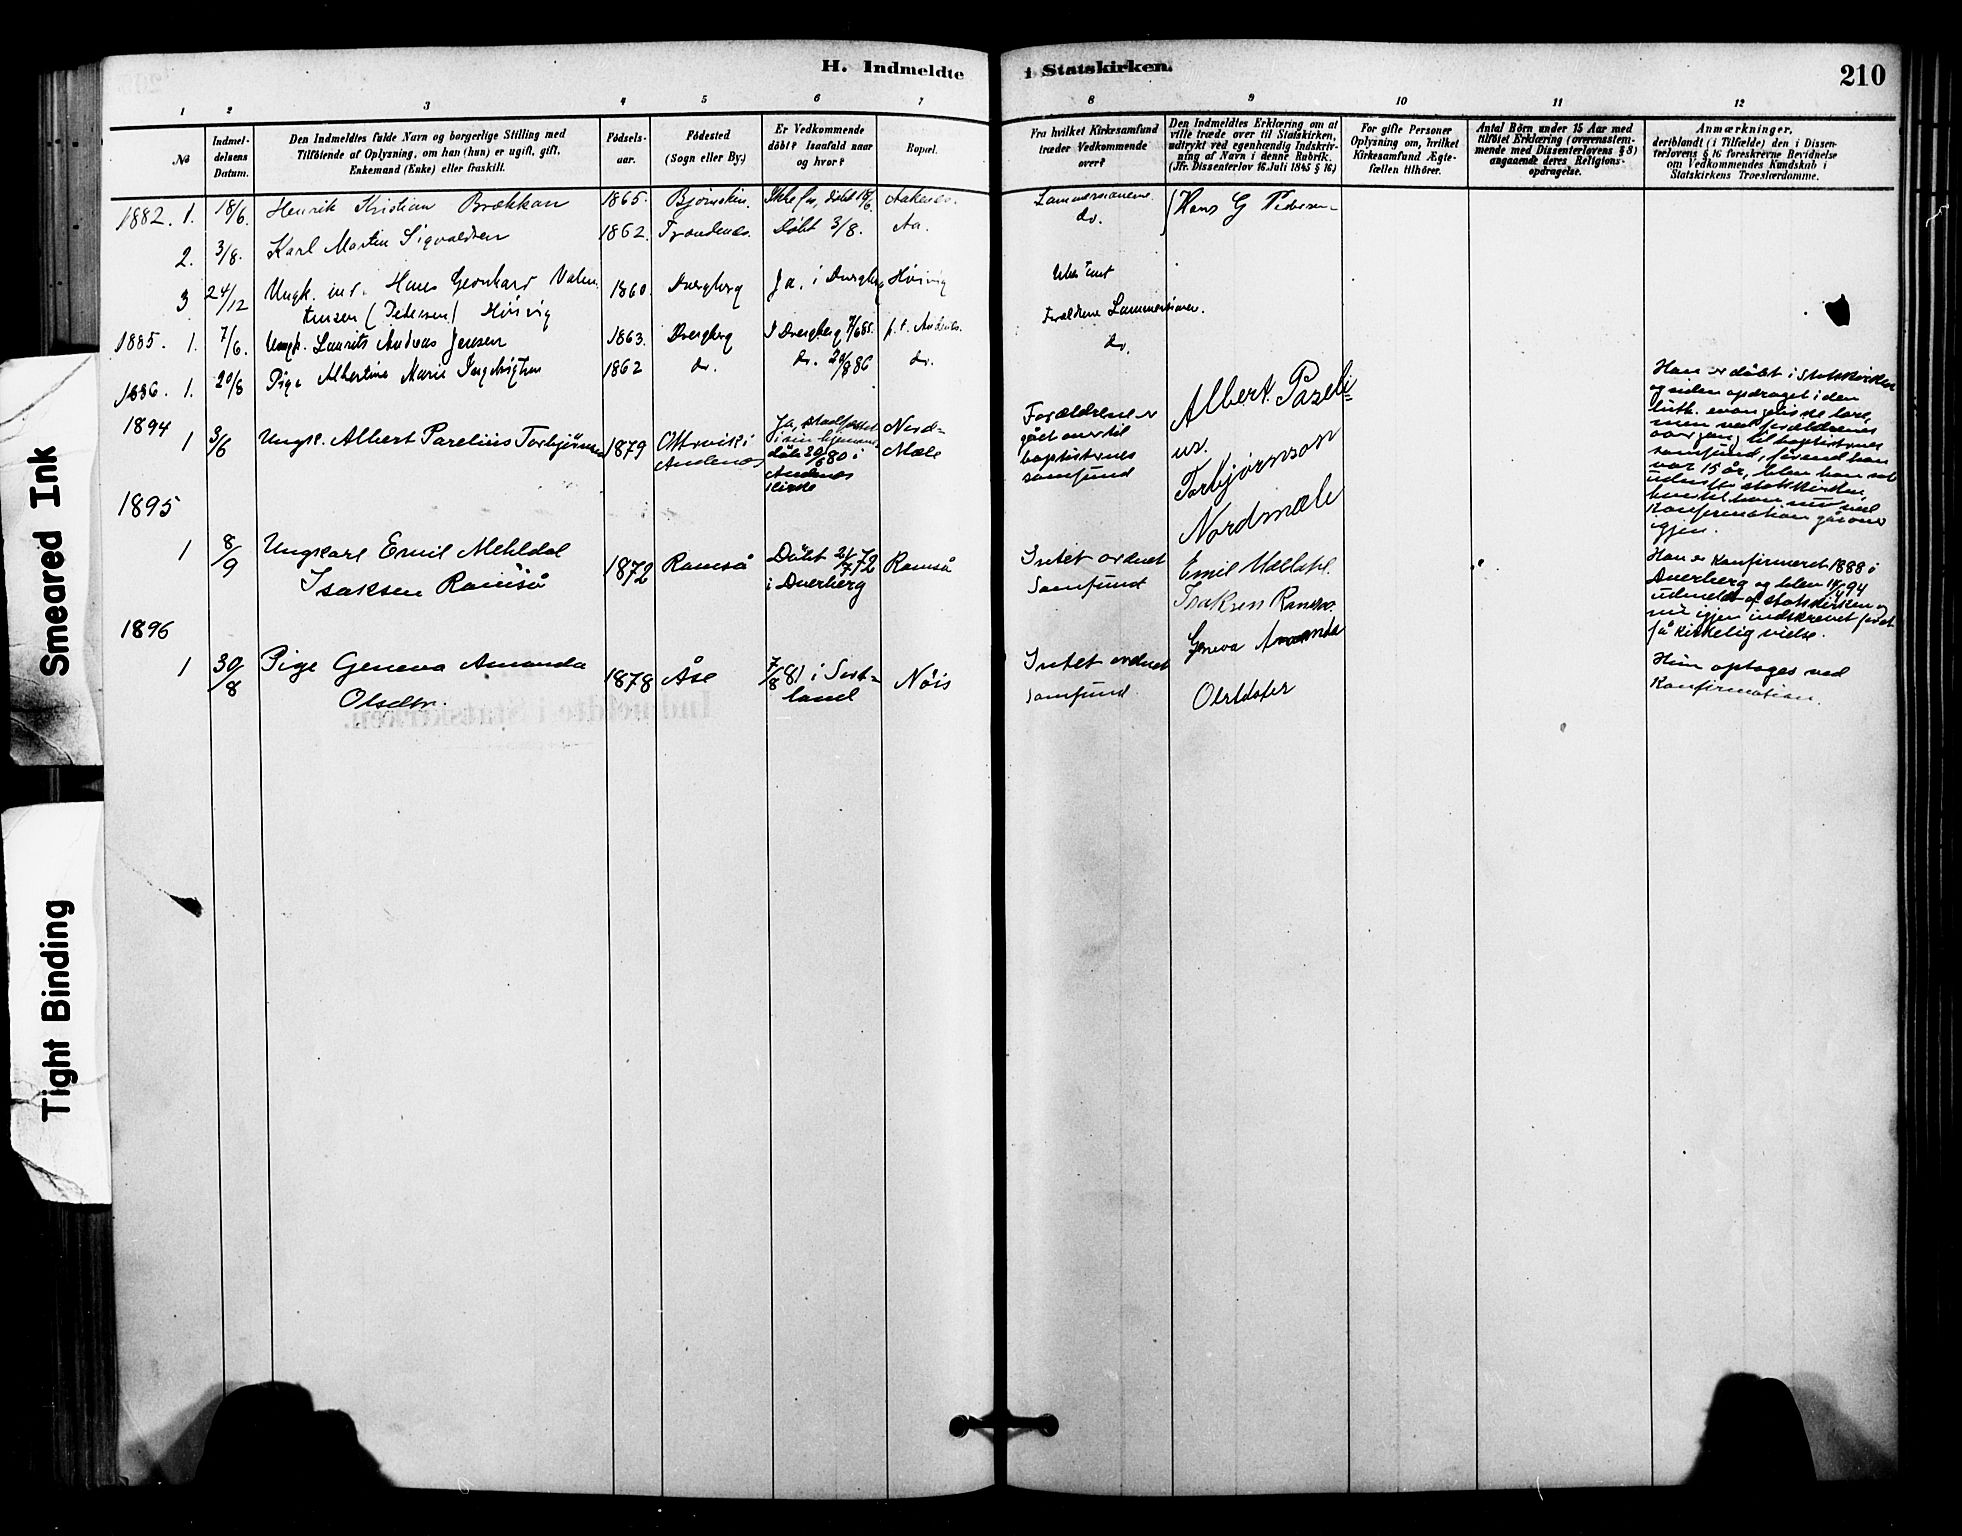 H. Indmeldte i Statskirken.
210
1 2 3 4 5 6 7 8 9 10 11 12
No
Indmel-
delsens
Datum.
Den Indmeldtes fulde Navn og borgerlige Stilling med
Tilföiende af Oplysning, om han (hun) er ugift, gift,
Enkemand (Enke) eller fraskilt.
Födsels-
aar.
Födested
(Sogn eller By.)
Er Vedkommende
döbt? Isaafald naar
og hvor?
Bopæl.
Fra hvilket Kirkesamfund
træder Vedkommende
over?
Den Indmeldtes Erklæring om at
ville træde over til Statskirken,
udtrykt ved egenhændig Indskriv-
ning af Navn i denne Rubrik.
(Jfr. Dissenterlov 16. Juli 1845 § 16)
For gifte Personer
Oplysning om, hvilket
Kirkesamfund Ægte-
fællen tilhörer.
Antal Börn under 15 Aar med
tilföiet Erklæring (overensstem-
mende med Dissenterlovens § 8)
angaaende deres Religions-
opdragelse.
Anmærkninger,
deriblandt (i Tilfælde) den i Dissen-
terlovens § 16 foreskrevne Bevidnelse
om Vedkommendes Kundskab i
Statskirkens Troeslærdomme.
1882. 1. 18/6. Henrik Kristian Brækkan 1865. Bjørnskin. Döbt 18/6.
Hans G Pedersen
2. 3/8. Karl Martin Sigvaldsen 1862. Trondenes. Döbt 3/8. Aa. do.
3 24/12 Ungk. Hans Leonhard Valen-
tinsen (Pedersen) Höivig 1860. Dverberg Ja, i Dverberg Höivig
Forældrene Lammersianer.
1885. 1. 7/6. Ungk. Laurits Andreas Jensen 1863. Dverberg I Dverberg 7/6 85. p.t. Andenes. do.
1886. 1. 20/8 Pige Albertine Marie Ingebrigtsen 1862 do. do. 20/8 86 do.
1894
1 3/6 Ungk. Albert Parelius Torbjørnsen 1879
Andenes
Ja, stadfæstet
döbt 20/6 80 i
Andenes
Kirke
Nord-
Mæle
Forældrene er
gået over til
baptisternes
samfund
Albert. Pareli=
us.
Torbjørnson
Nordmæle
Han er døbt i Statskirken
og siden opdraget i den
luth. evangeliske lære,
men ved forældrenes
overgang til baptisternes
samfund, førend han
var 15 år, blev han
statskirken,
Konfirmation går over
igjen.
1895
1 8/9 Ungkarl Emil Mehldal
Isaksen Ramsö 1872 Ramså
Döbt 21/7 72
i Dverberg
Ramså
Intet ordnet
Samfund
Emil
Isaksen Ramsö.
Han er konfirmeret 1888 i
Dverberg og blev 94
udmeldt af statskirken og
nu igjen indskrevet for at
få kirkelig vielse.
1896
1 30/8 Pige Geneva Amanda
Olsdtr. 1878 Åse
7/8 81 i Sort-
land
Nöis
Intet ordnet
samfund.
Geneva Amanda
Olsdater
Hun optages ved
Konfirmation.
Smeared Ink
Tight Binding